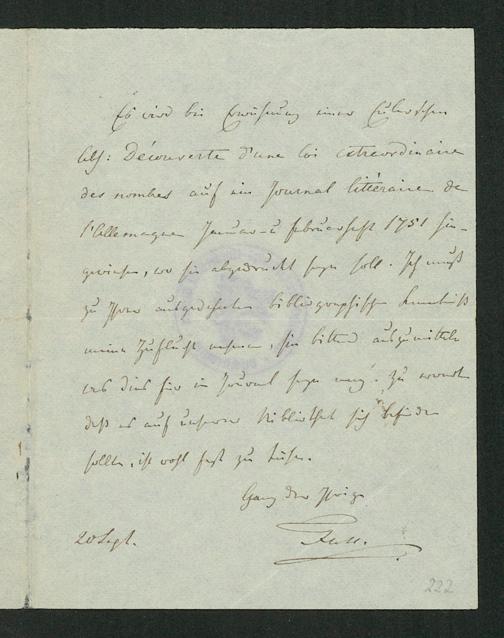 Es wird bei Erwähnung einer Eulerschen
Abh: Découverte d'une loi extraordinaire
des nombres auf ein Journal littéraire de
l'Allemagne Januar- u Februarheft 1751 hin-
gewiesen, wo sie abgedruckt seyn soll. Ich muß
zu Ihrer ausgedehnten bibliographischen Kenntniß
meine Zuflucht nehmen, Sie bittend auszumitteln
was dies für ein Journal seyn mag. Zu
daß es auf unserer Bibliothek sich befinden
sollte, ist wohl fast zu
Ganz der Ihrige
20 Sept. Fuss.
222